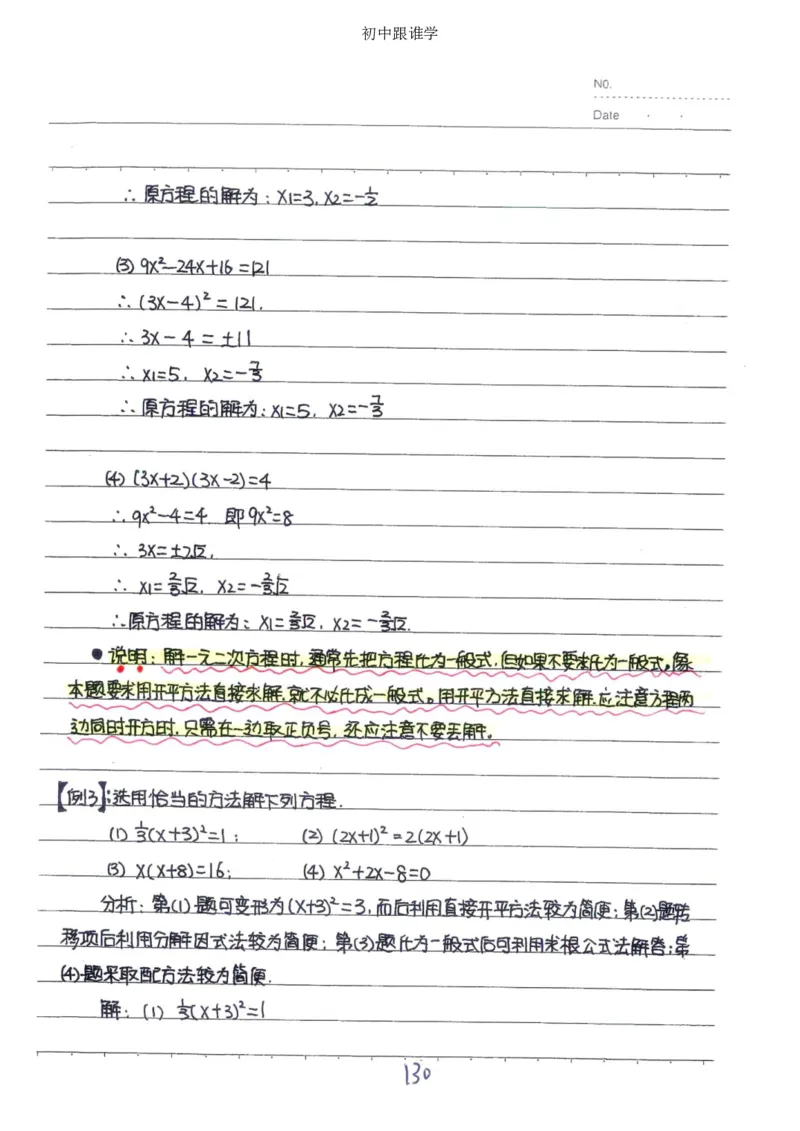 初中跟谁学
NO.
Date
∴原方程的解为：X1=3, X2=-1/2
(3) 9X²-24X+16=121
∴(3X-4)²=121.
∴3X-4=±11
∴X1=5, X2=-7/3
∴原方程的解为：X1=5, X2=-7/3
(4) (3X+2)(3X-2)=4
∴9X²-4=4 即9X²=8
∴3X=±2√2,
∴X1=2/3√2, X2=-2/3√2
∴原方程的解为：X1=2/3√2, X2=-2/3√2.
●说明：解一元二次方程时,通常先把方程化为一般式,但如果不要求化为一般式。像
本题要求用开平方法直接求解,就不必化成一般式。用开平方法直接求解,应注意方程两
边同时开方时,只需在一边取正负号,还应注意不要丢解。
【例3】：选用恰当的方法解下列方程.
(1) 1/3(X+3)²=1； (2) (2X+1)²=2(2X+1)
(3) X(X+8)=16； (4) X²+2X-8=0
分析：第(1)题可变形为(X+3)²=3,而后利用直接开平方法较为简便；第(2)题转
移项后利用分解因式法较为简便；第(3)题化为一般式后可利用求根公式法解答；第
(4)题采取配方法较为简便.
解：(1) 1/3(X+3)²=1
130